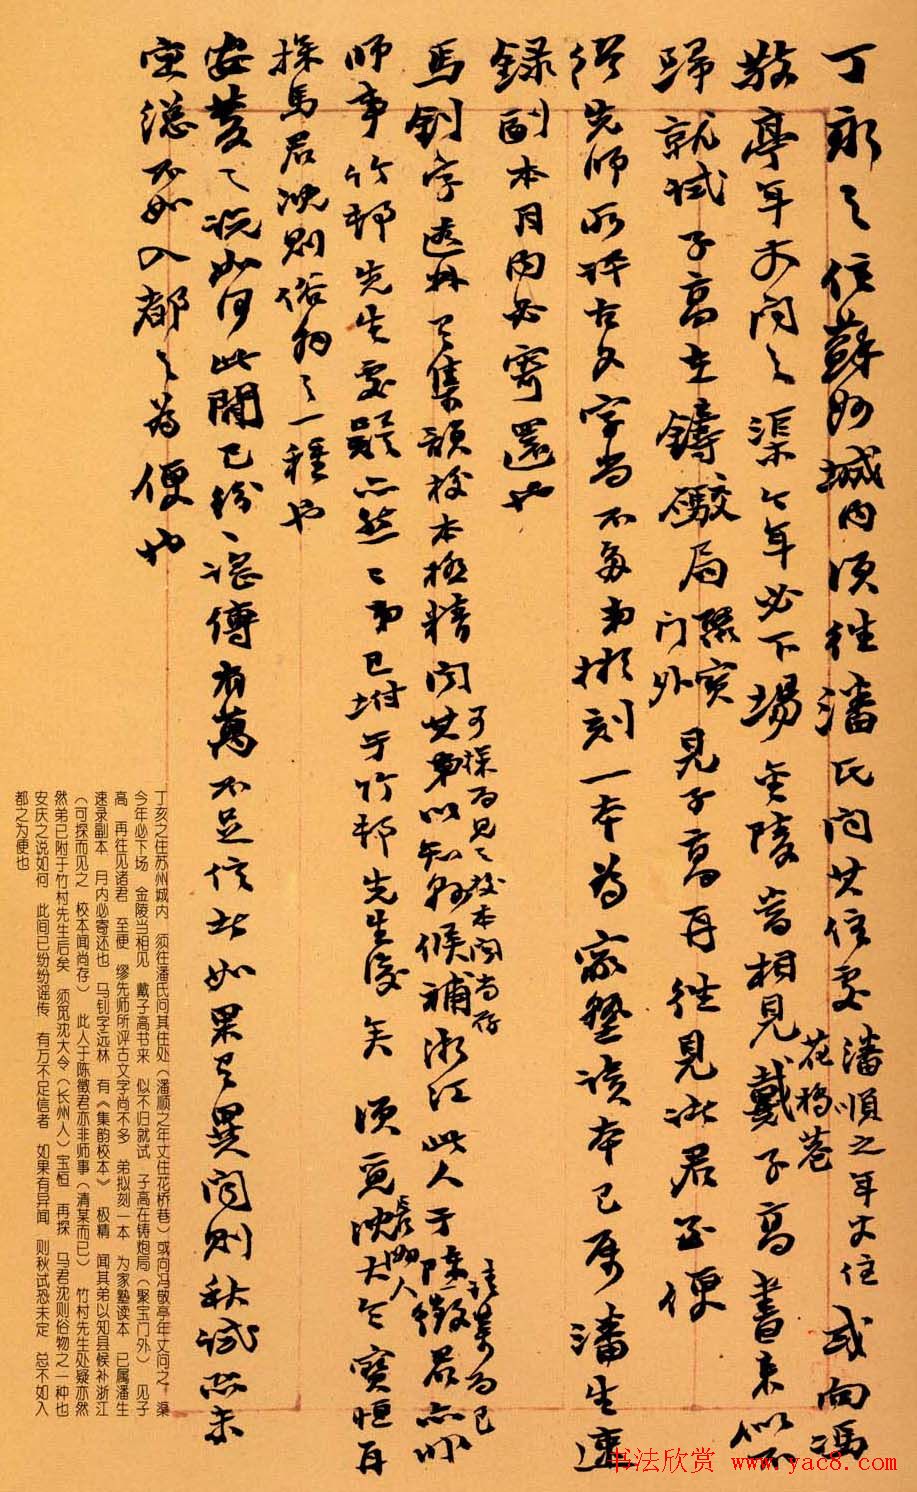 丁泳之住蘇州城内須往潘氏问其住处潘順之年丈住花桥巷或向馮
敬亭年丈问之渠今年必下場金陵當相見戴子高書来似不
歸就試子高在鑄礮局聚寳门外見子高再往見諸君至便
繆先師所評古文字尚不多弟擬刻一本為家塾读本已属潘生速
録副本月内必寄還也
馬釗字遠林有集韻校本極精闻其弟以知縣候補浙江此人于陳徵君亦非
可探而見之校本闻尚存
師事清某而已竹邨先生处疑亦然然弟已坿于竹邨先生後矣須覓沈大令長州人寳恒再
探馬君沈則俗物之一種也
安慶之说如何此間已纷纷谣傳有萬不足信者如果有異闻則秋試恐未
定總不如入都之為便也
丁亥之住苏州城内 须往潘氏问其住处（潘顺之年丈住花桥巷）或向冯敬亭年丈问之 渠
今年必下场 金陵当相见 戴子高书来 似不归就试 子高在铸炮局（聚宝门外） 见子
高 再往见诸君 至便 缪先师所评古文字尚不多 弟拟刻一本 为家塾读本 已属潘生
速录副本 月内必寄还也 马钊字远林 有《集韵校本》 极精 闻其弟以知县候补浙江
（可探而见之 校本闻尚存） 此人于陈徵君亦非师事（清某而已） 竹村先生处疑亦然
然弟已附于竹村先生后矣 须觅沈大令（长州人）宝恒 再探 马君沈则俗物之一种也
安庆之说如何 此间已纷纷谣传 有万不足信者 如果有异闻 则秋试恐未定 总不如入
都之为便也
书法欣赏 www.yac8.com